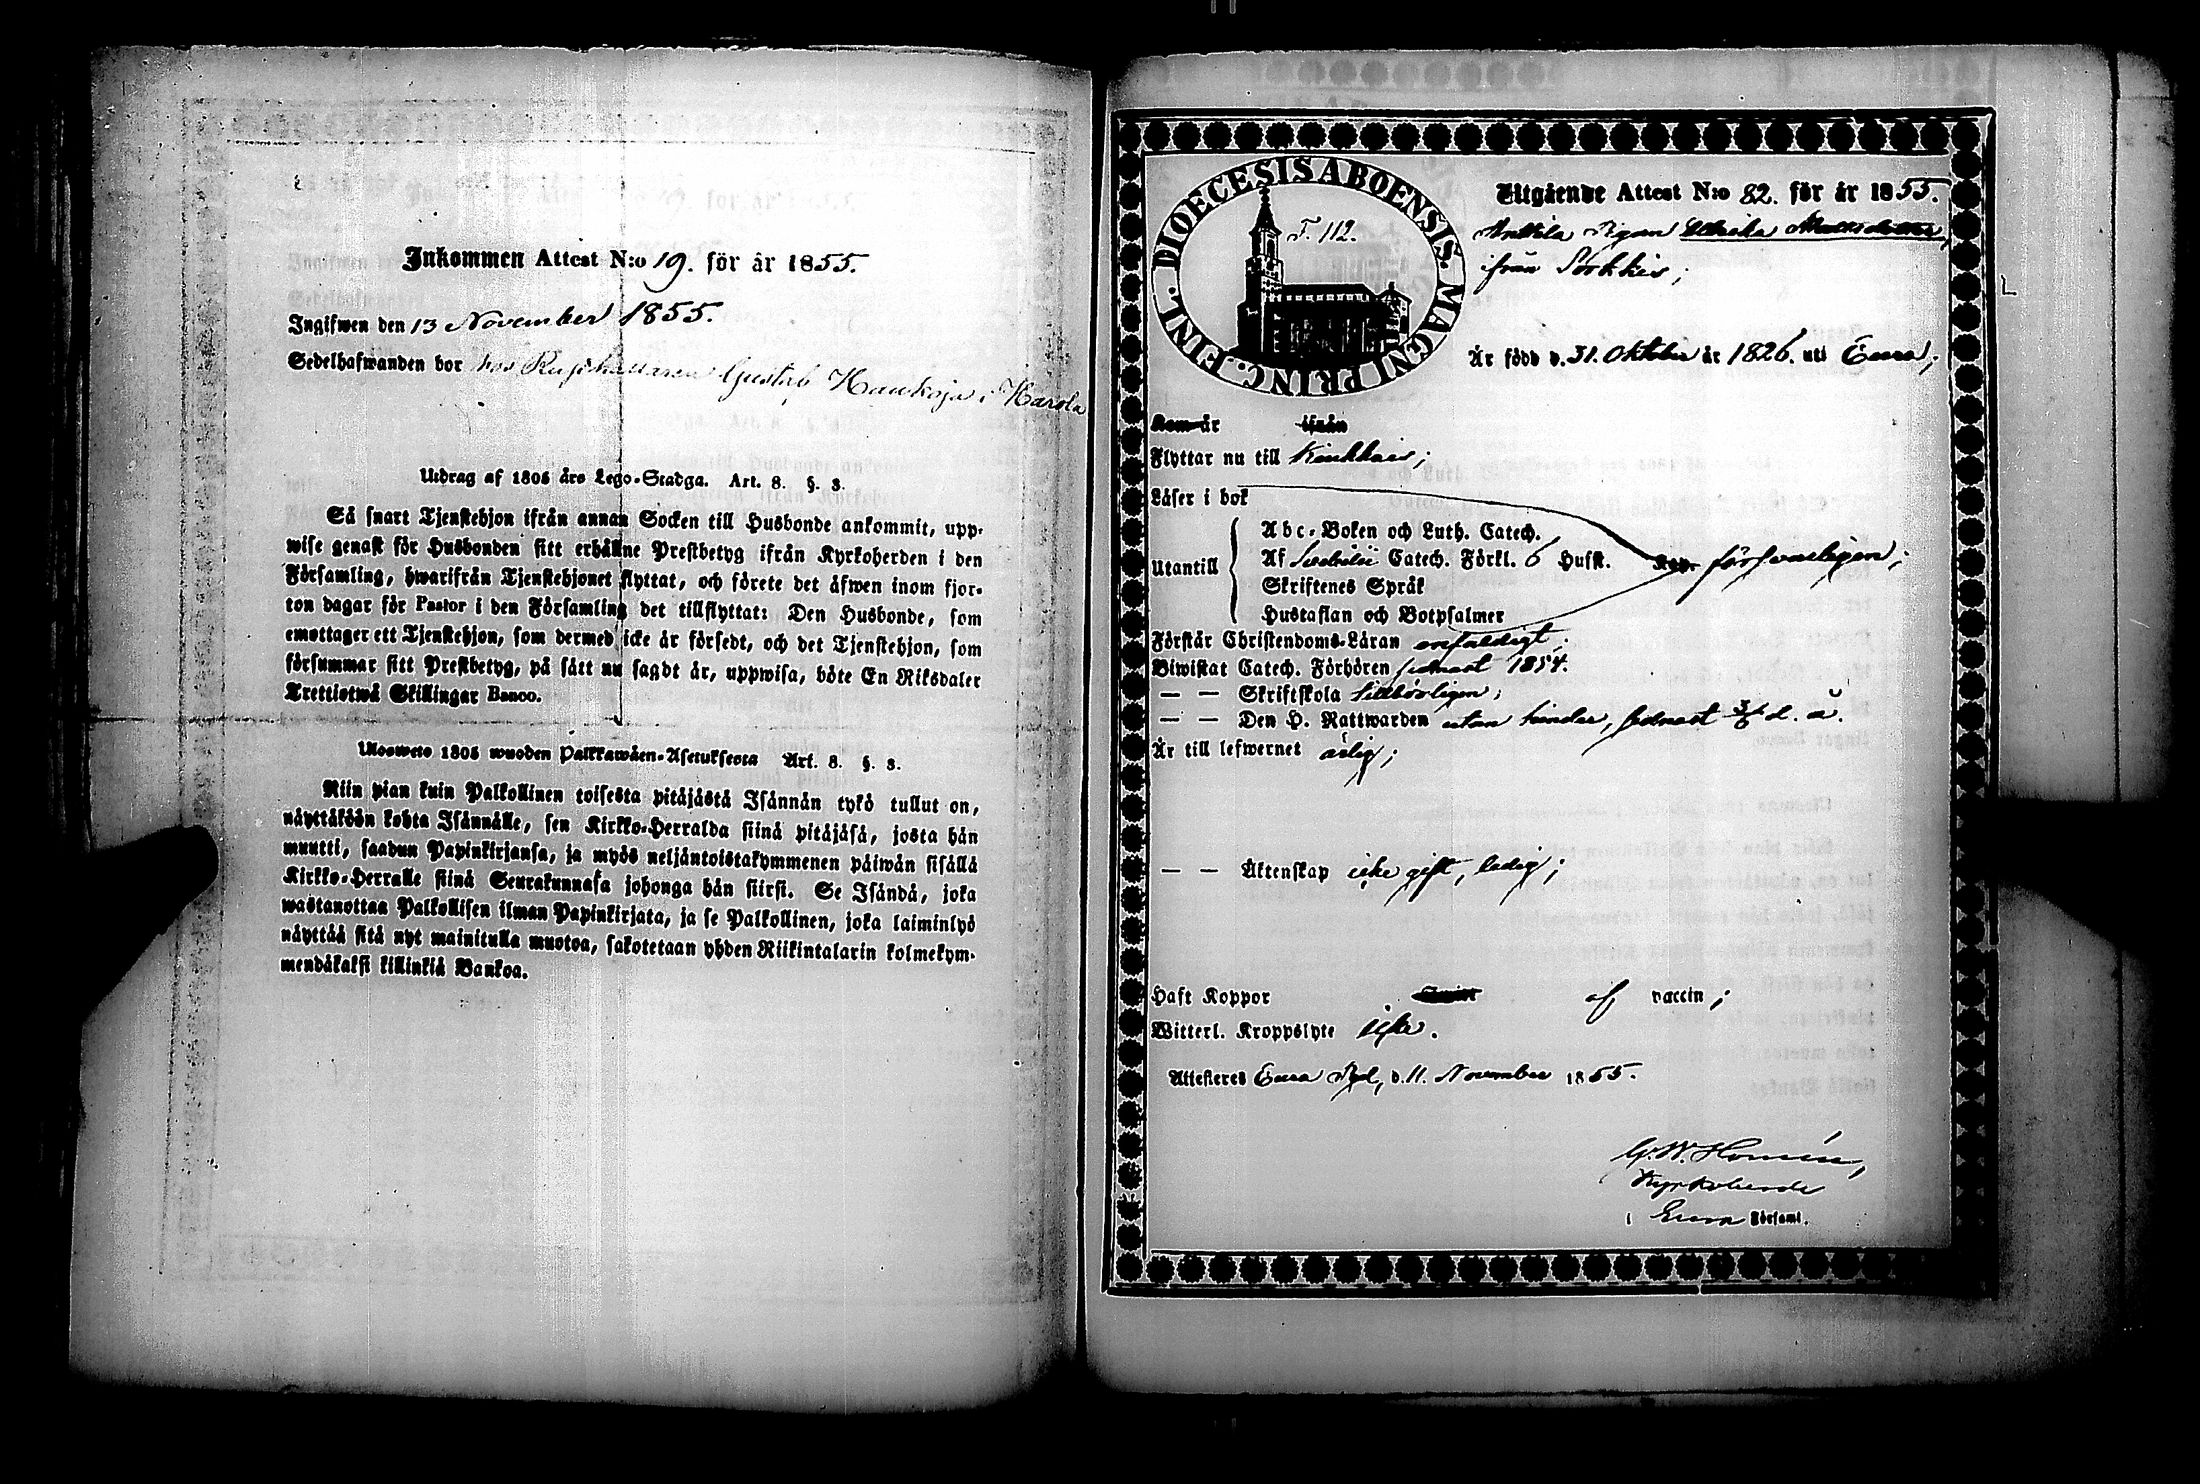 Inkommen Attest N:o 19. för år 1855.
Ingifwen den 13 November 1855.
Sedelhafwanden bor hos Gustaf Haukoja i Harola
Utdrag af 1805 års Lego-Stadga. Art. 8. §. 3.
Så snart Tjenstehjon ifrån annan Socken till Husbonde ankommit, upp-
wise genast för Husbonden sitt erhållne Prestbetyg ifrån Kyrkoherden i den
Församling, hwarifrån Tjenstehjonet flyttat, och förete det äfwen inom fjor-
ton dagar för Pastor i den Församling det tillflyttat: Den Husbonde, som
emottager ett Tjenstehjon, som dermed icke är försedt, och det Tjenstehjon, som
försummar sitt Prestbetyg, på sätt nu sagdt är, uppwisa, böte En Riksdaler
Trettiotwå Skillingar Banco.
Ulosweto 1805 wuoden Palkkawäen-Asetuksesta Art. 8. §. 3.
Niin pian kuin Palkollinen toisesta pitäjästä Isännän tykö tullut on,
näyttäköön kohta Isännälle, sen Kirkko-Herralda siinä pitäjäsä, josta hän
muutti, saadun Papinkirjansa, ja myös neljäntoistakymmenen päiwän sisällä
Kirkko-Herralle siinä Seurakunnasa johonga hän siirsi. Se Isändä, joka
wastanottaa Palkollisen ilman Papinkirjata, ja se Palkollinen, joka laiminlyö
näyttää sitä nyt mainitulla muotoa, sakotetaan yhden Riikintalarin kolmekym-
mendäkaksi killinkiä Bankoa.
DIOECESIS ABOENSIS. MAGNI PRINC. FINL.
T. 112.
Utgående Attest N:o 82. för år 1855.
Anttila Pigan Ulrika Mattsdotter,
ifrån Sorkkis;
Är född d. 31. Oktober år 1826. uti Eura;
Kom år ifrån
Flyttar nu till Kiukkais;
Läser i bok
Abc-Boken och Luth. Catech.
Utantill Af Svebilii Catech. Förkl. 6 Hufst. försvarligen;
Skriftenes Språk
Hustaflan och Botpsalmer
Förstår Christendoms-Läran enfaldigt;
Biwistat Catech. Förhören sednast 1854.
— — Skriftskola tillbörligen;
— — Den H. Nattwarden utan hinder, sednast d. å.
Är till lefwernet ärlig;
— — Äktenskap icke gift, ledig;
Haft Koppor af vaccin;
Witterl. Kroppslyte icke.
Attesteres Eura d. 11. November 1855.
G. W. Homén,
Kyrkoherde
i Eura Församl.